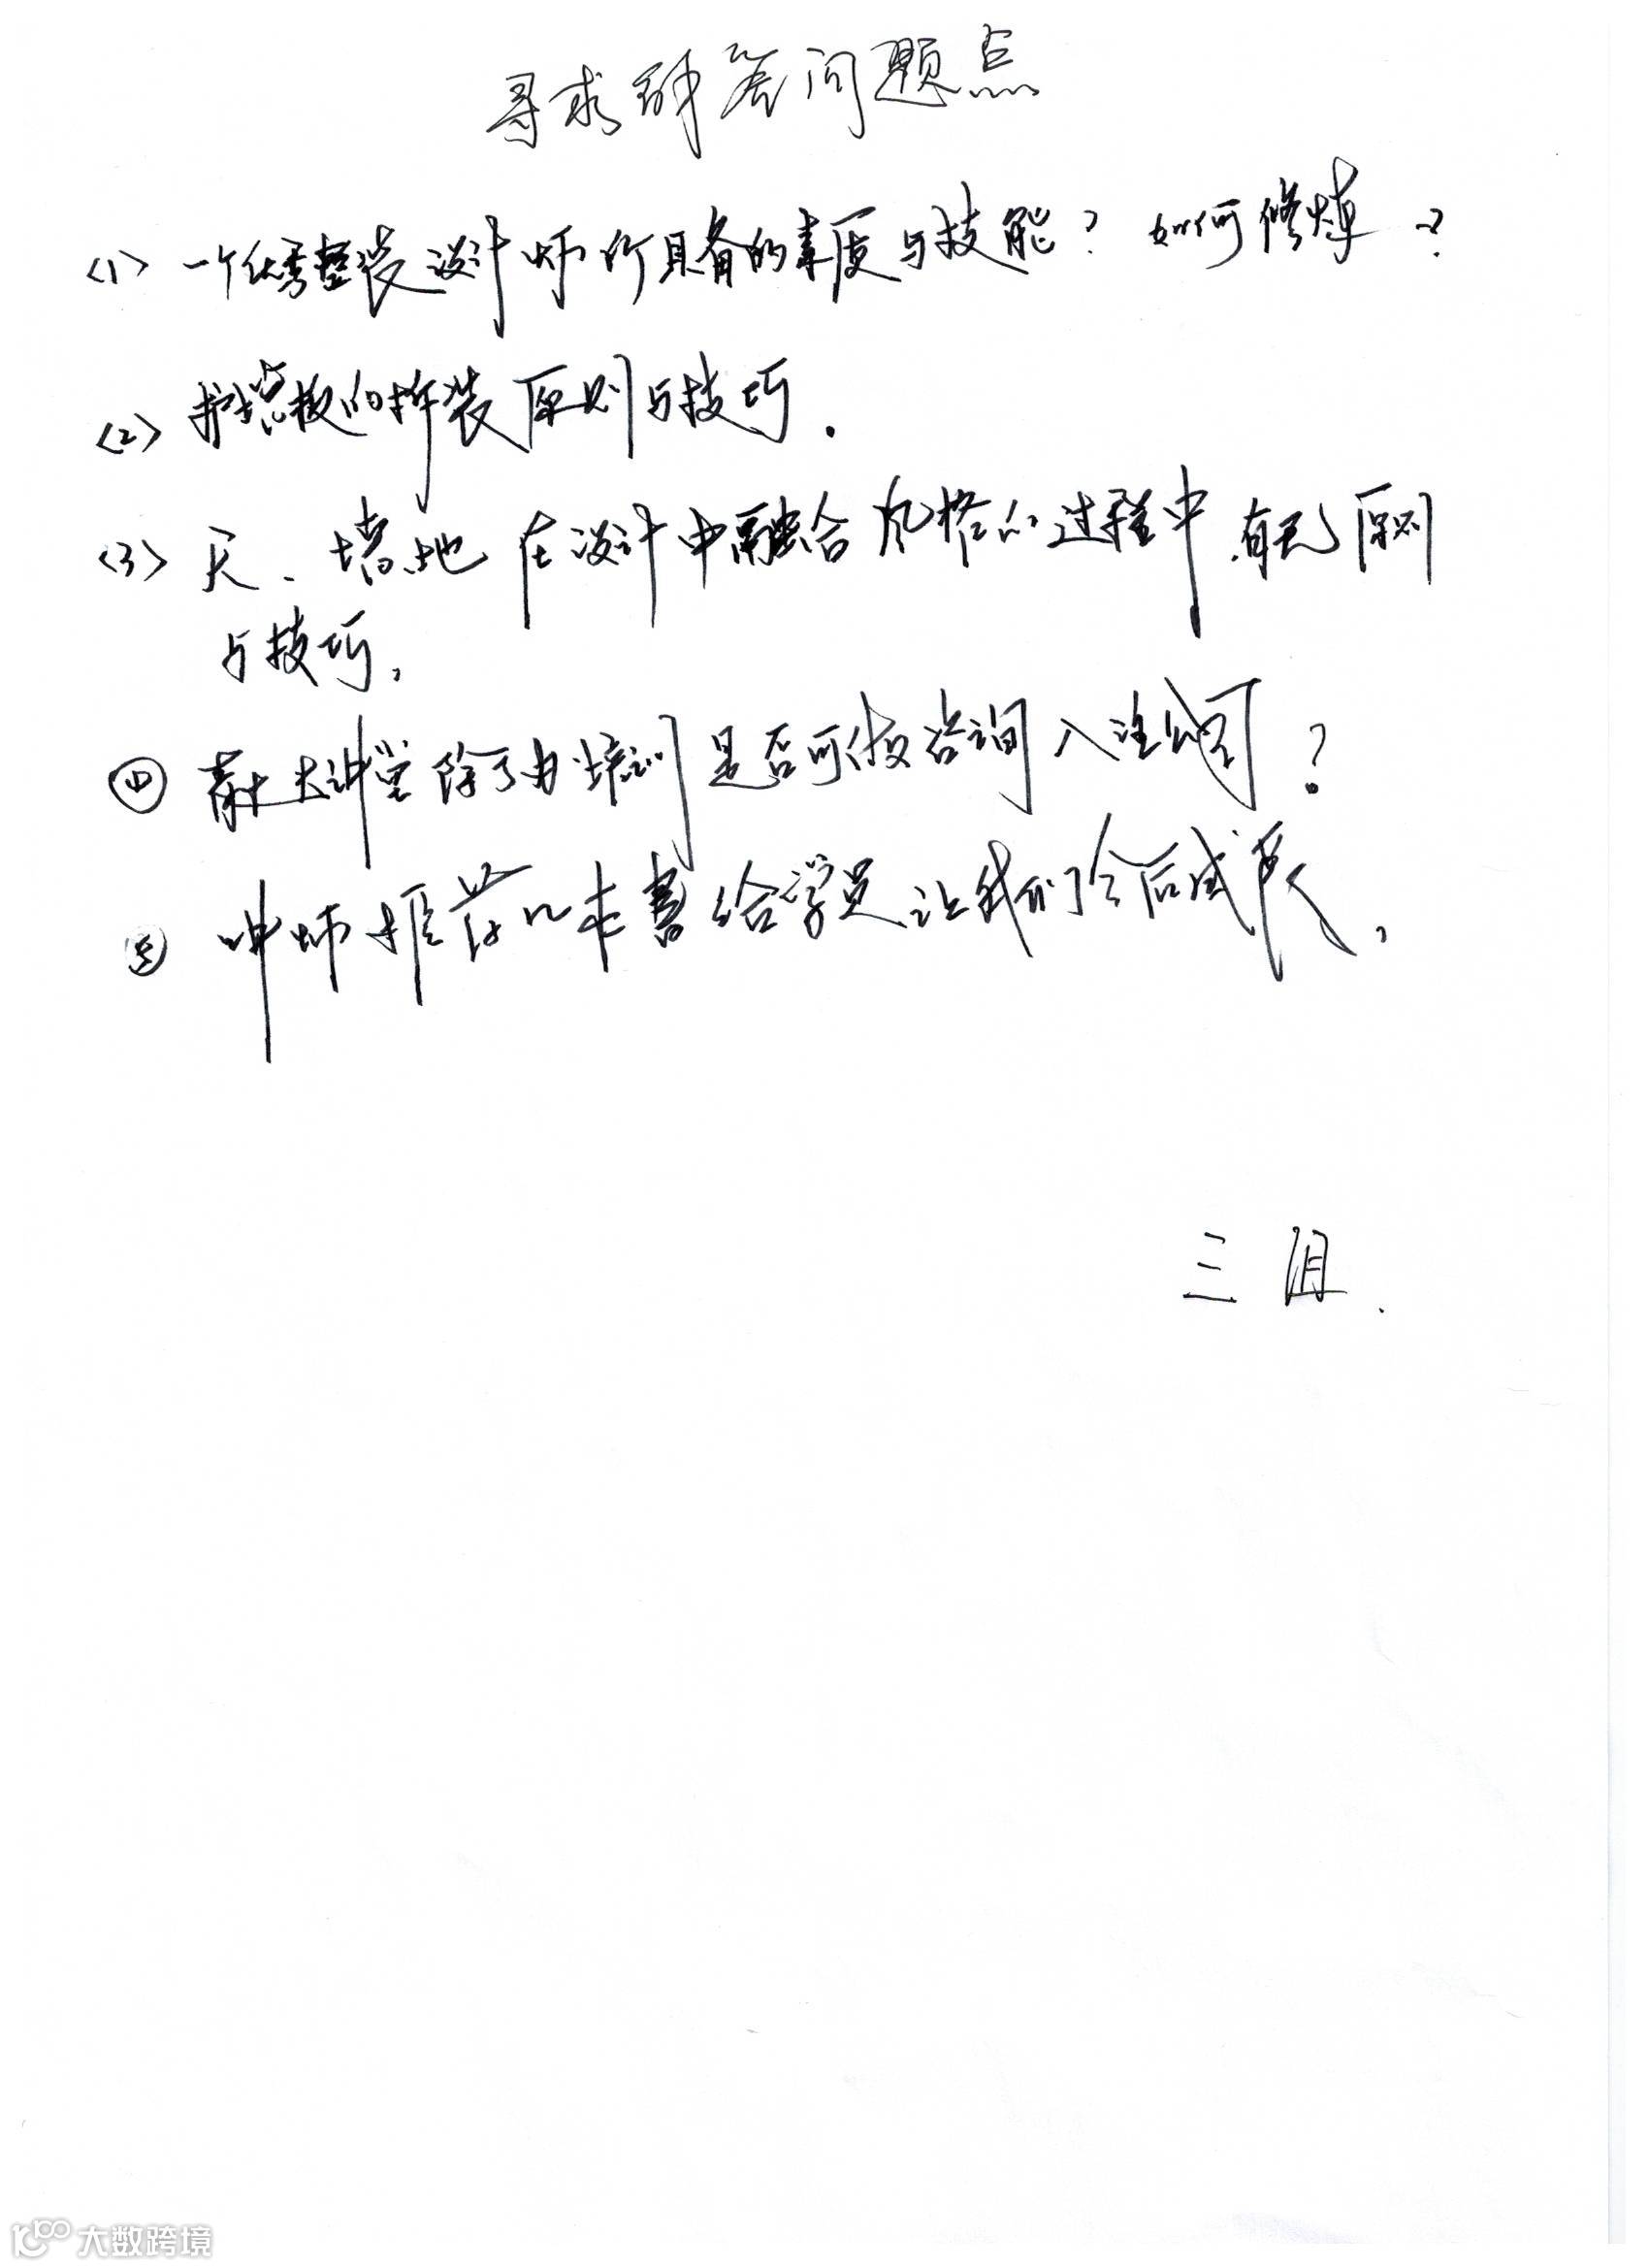 寻求解答问题点
<1> 一个优秀整装设计师所具备的素质与技能？如何修炼？
<2> 护墙板的拆装原则与技巧.
<3> 天、墙、地在设计中融合风格的过程中有无原则
与技巧,
④ 大讲堂除了办培训是否可做咨询入注公司？
⑤ 坤师推荐几本書给学员让我们今后成长,
三组.
大数跨境